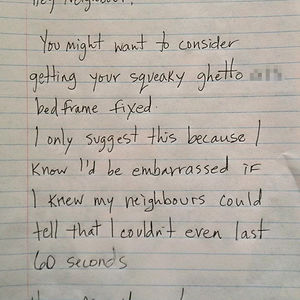 Hey Neighbour,
You might want to consider
getting your squeaky ghetto
bedframe fixed.
I only suggest this because I
know I'd be embarrassed if
I knew my neighbours could
tell that I couldn't even last
60 seconds